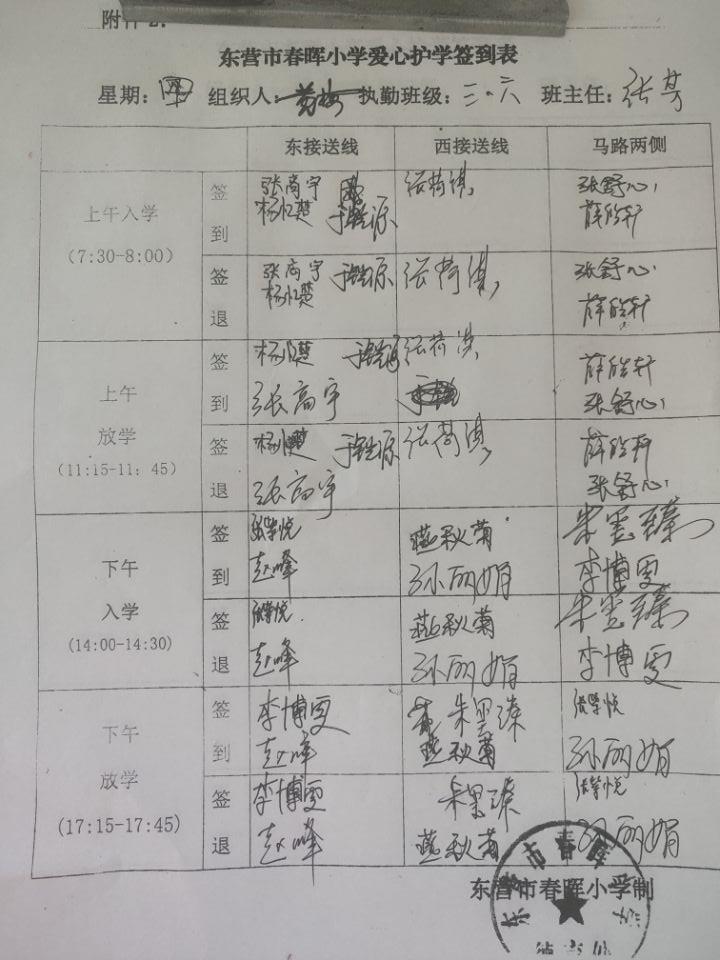 附件2:
东营市春晖小学爱心护学签到表
星期：四 组织人： 执勤班级：三.六 班主任：张芳
东接送线 西接送线 马路两侧
上午入学
（7:30-8:00）
签到 张高宇 杨忆楚 张荷淇 张舒心 薛皓轩
签退 张高宇 杨忆楚 张荷淇 张舒心 薛皓轩
上午
放学
（11:15-11：45）
签到 杨忆楚 张高宇 张荷淇 薛皓轩 张舒心
签退 杨忆楚 张高宇 张荷淇 薛皓轩 张舒心
下午
入学
(14:00-14:30)
签到 赵峰 燕秋菊 孙丽娟 李博雯
签退 赵峰 燕秋菊 孙丽娟 李博雯
下午
放学
(17:15-17:45)
签到 李博雯 赵峰 燕秋菊 孙丽娟
签退 李博雯 赵峰 燕秋菊 孙丽娟
东营市春晖小学制
东营市春晖小学